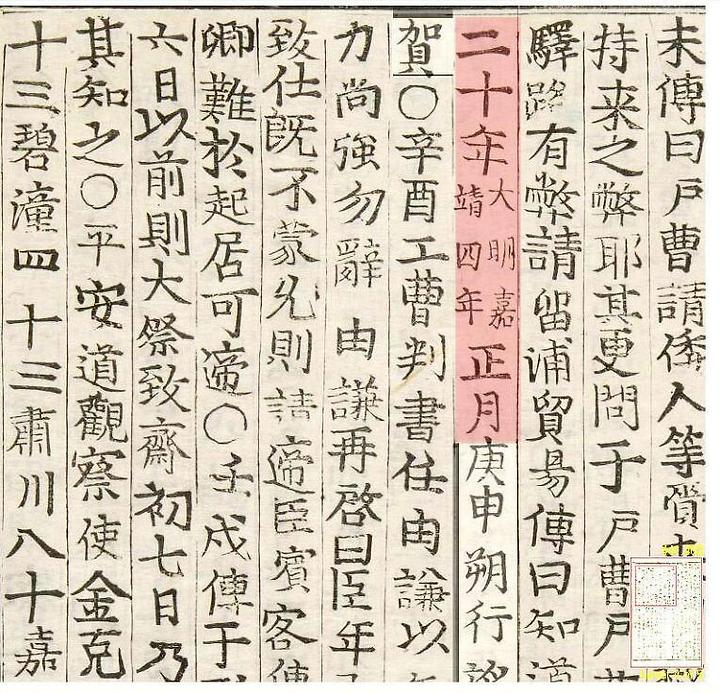 未傳曰戶曹請倭人等質
持来之弊耶其更問于戶曹戶
驛路有弊請留浦貿易傳曰知道
二十年大明嘉靖四年正月庚申朔行望
賀○辛酉工曹判書任由謙以
力尚強勿辭由謙再啓曰臣年
致仕既不蒙允則請遞臣賓客傳
卿難於起居可遞○壬戌傳于
六日以前則大祭致齋初七日乃
其知之○平安道觀察使金克
十三碧潼四十三肅川八十嘉